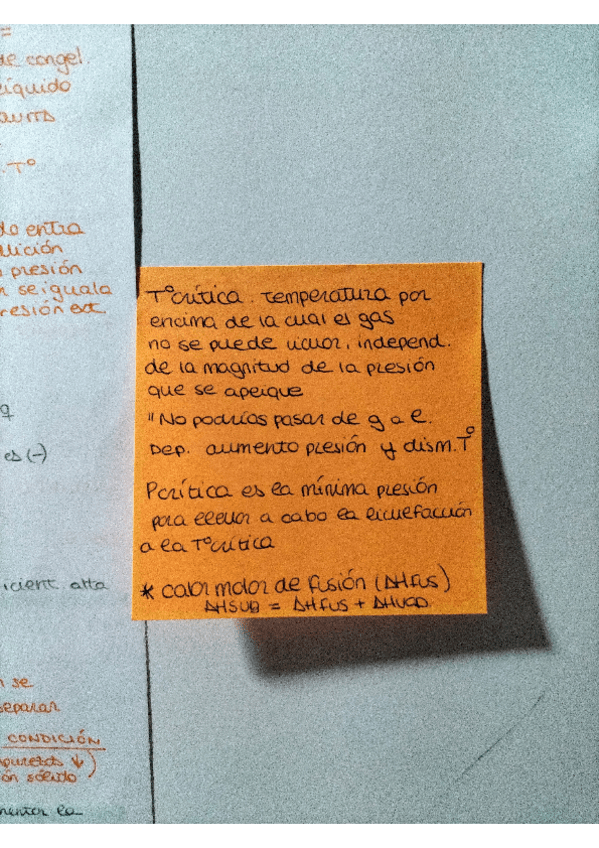 =
de congel.
líquido
T°
do entra
llición
presión
se iguala
resión ext.
g
es (-)
icient. alta
n se
separar
CONDICIÓN
impurezas ↓)
ón sólido
mentar la
T°crítica. Temperatura por
encima de la cual el gas
no se puede licuar, independ.
de la magnitud de la presión
que se aplique
"No podrías pasar de g a l.
Dep. aumento presión y dism. T°
Pcrítica es la mínima presión
para llevar a cabo la licuefacción
a la T°crítica
* calor molar de fusión (ΔHFUS)
ΔHSUB = ΔHFUS + ΔHVAP.